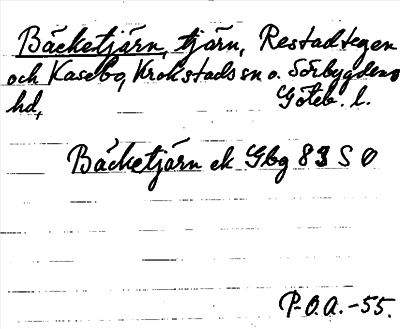 Bäcketjärn, tjärn, Restadtegen
och Kasebo, Krokstads sn o. Sörbygdens
hd, Göteb. l.
Bäcketjärn ek Gbg 83 S Ö
P-O.A. -55.